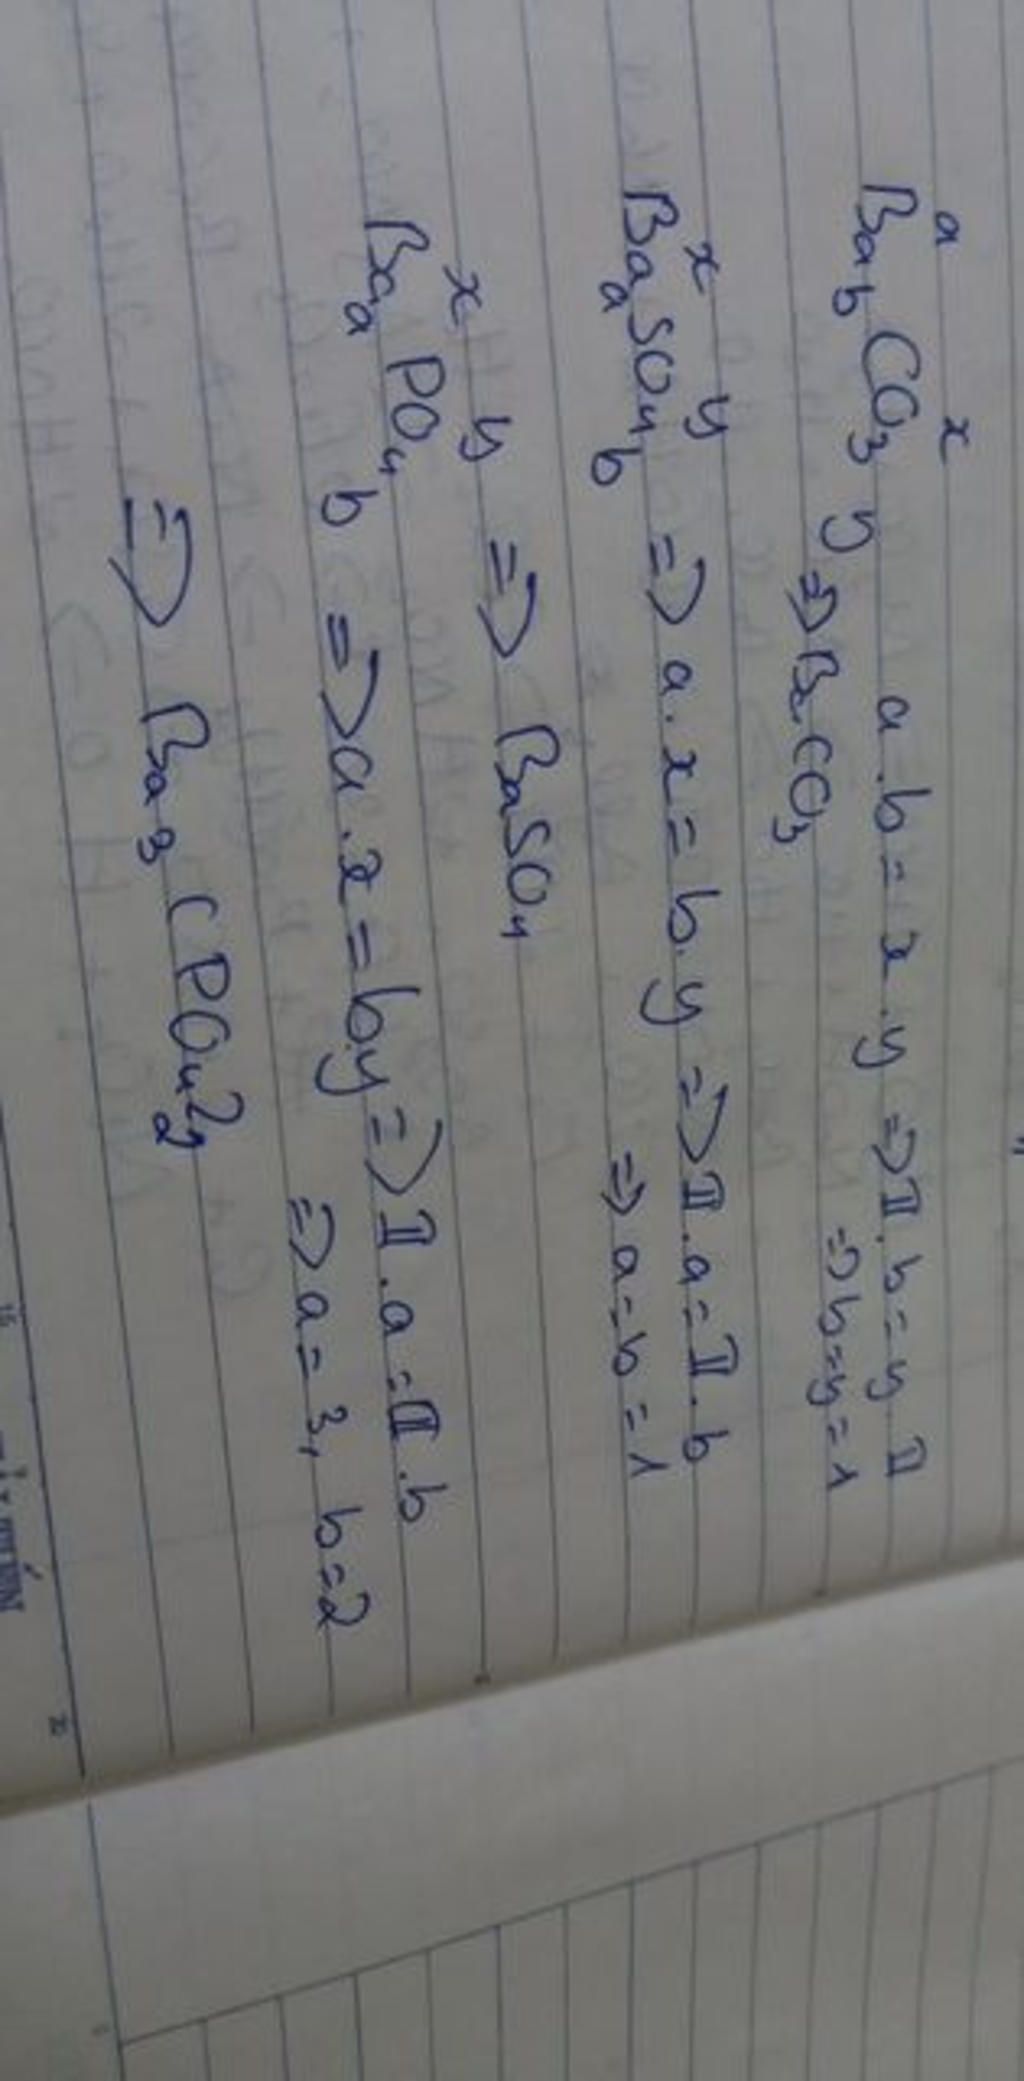 a x
Ba_b CO3 y a.b = x.y => II.b = y.II
=> BaCO3 => b=y=1
x y
Ba_a SO4 b => a.x = b.y => II.a = II.b
=> a=b=1
x y => BaSO4
Ba_a PO4 b => a.x = b.y => II.a = III.b
=> a=3, b=2
=> Ba3(PO4)2